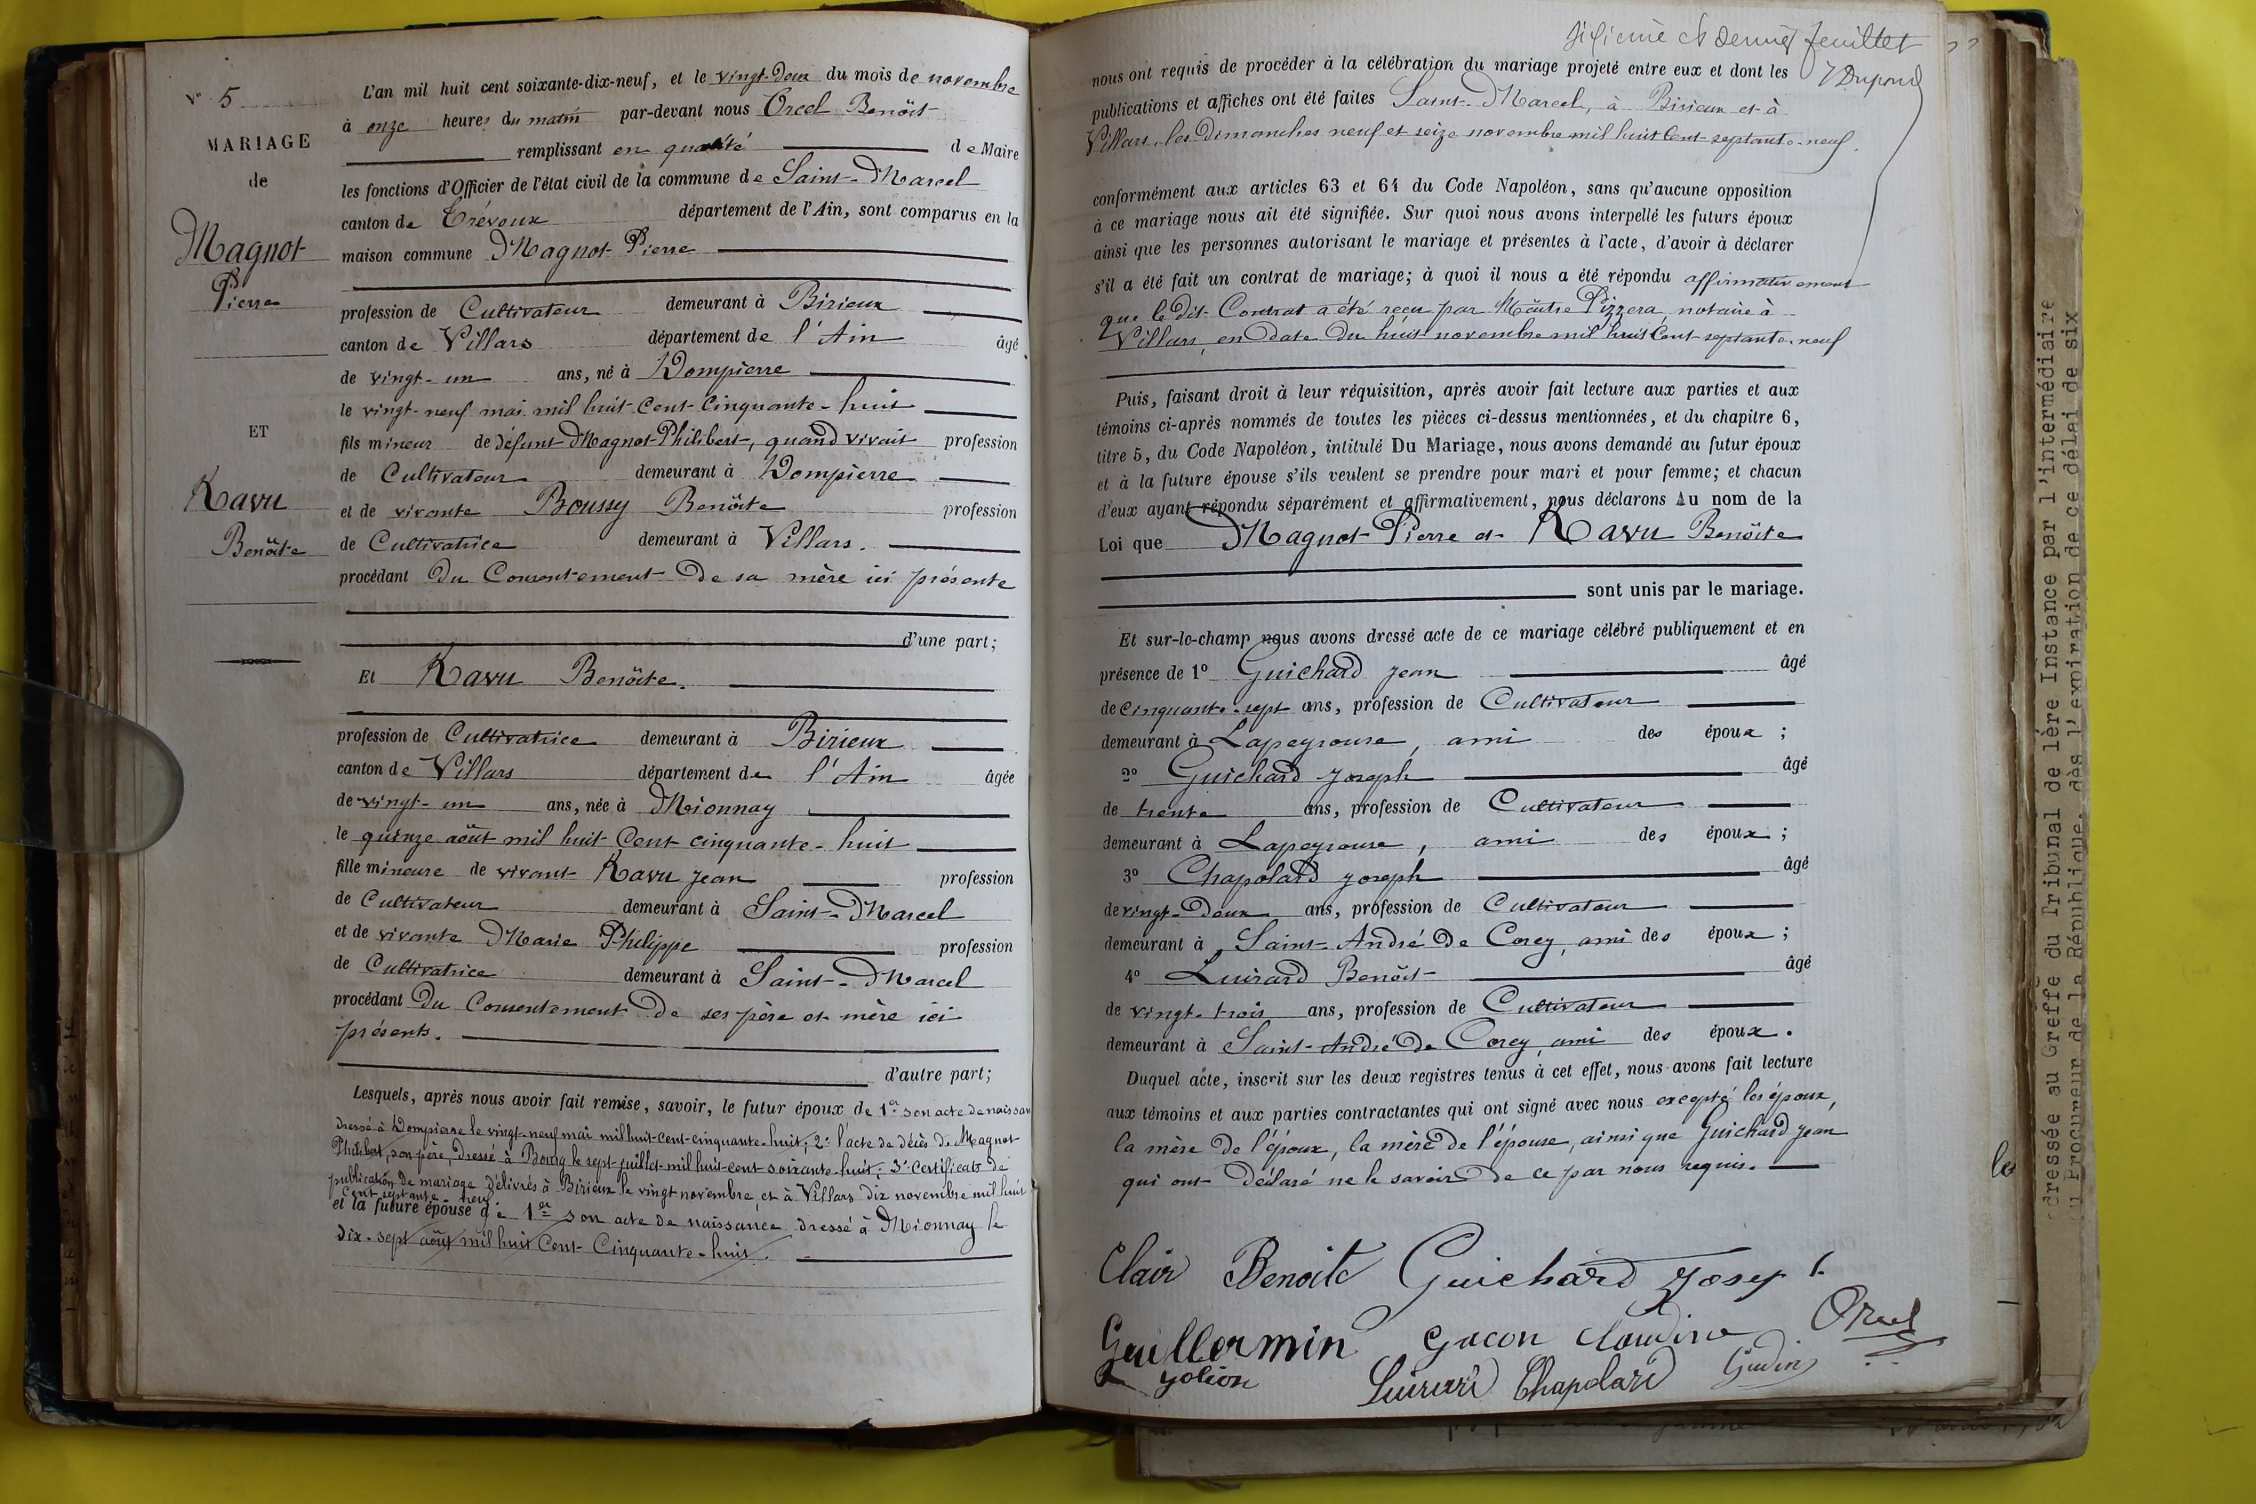 N° 5
MARIAGE
de
Magnot
Pierre
ET
Ravu
Benoîte
L'an mil huit cent soixante-dix-neuf, et le vingt-deux du mois de novembre
à onze heures du matin par-devant nous Orcel Benoît
remplissant en qualité de Maire
les fonctions d'Officier de l'état civil de la commune de Saint-Marcel
canton de Trévoux département de l'Ain, sont comparus en la
maison commune Magnot Pierre
profession de Cultivateur demeurant à Birieux
canton de Villars département de l'Ain âgé
de vingt-un ans, né à Dompierre
le vingt-neuf mai mil huit Cent Cinquante-huit
fils mineur de défunt Magnot Philibert, quand vivait profession
de Cultivateur demeurant à Dompierre
et de vivante Boussy Benoîte profession
de Cultivatrice demeurant à Villars.
procédant du Consentement de sa mère ici présente
d'une part;
Et Ravu Benoîte.
profession de Cultivatrice demeurant à Birieux
canton de Villars département de l'Ain âgée
de vingt-un ans, née à Mionnay
le quinze août mil huit Cent cinquante-huit
fille mineure de vivant Ravu Jean profession
de Cultivateur demeurant à Saint-Marcel
et de vivante Marie Philippe profession
de Cultivatrice demeurant à Saint-Marcel
procédant du Consentement de ses père et mère ici
présents.
d'autre part;
Lesquels, après nous avoir fait remise, savoir, le futur époux de 1er son acte de naissan
dressé à Dompierre le vingt-neuf mai mil huit-cent-cinquante-huit; 2° l'acte de décès de Magnot
Philibert, son père, dressé à Bourg le sept juillet mil huit-cent-soixante-huit; 3° Certificats de
publication de mariage délivrés à Birieux le vingt novembre et à Villars dix novembre mil huit
Cent septante neuf
et la future épouse de 1er son acte de naissance dressé à Mionnay le
dix-sept août mil huit Cent-Cinquante-huit.
dernier feuillet
Dupond
nous ont requis de procéder à la célébration du mariage projeté entre eux et dont les
publications et affiches ont été faites Saint-Marcel, à Birieux et à
Villars, les dimanches neuf et seize novembre mil huit Cent septante-neuf.
conformément aux articles 63 et 64 du Code Napoléon, sans qu'aucune opposition
à ce mariage nous ait été signifiée. Sur quoi nous avons interpellé les futurs époux
ainsi que les personnes autorisant le mariage et présentes à l'acte, d'avoir à déclarer
s'il a été fait un contrat de mariage; à quoi il nous a été répondu affirmativement
que le dit Contrat a été reçu par Maître Pizzera, notaire à
Villars, en date du huit novembre mil huit Cent septante-neuf
Puis, faisant droit à leur réquisition, après avoir fait lecture aux parties et aux
témoins ci-après nommés de toutes les pièces ci-dessus mentionnées, et du chapitre 6,
titre 5, du Code Napoléon, intitulé Du Mariage, nous avons demandé au futur époux
et à la future épouse s'ils veulent se prendre pour mari et pour femme; et chacun
d'eux ayant répondu séparément et affirmativement, nous déclarons Au nom de la
Loi que Magnot Pierre et Ravu Benoîte
sont unis par le mariage.
Et sur-le-champ nous avons dressé acte de ce mariage célébré publiquement et en
présence de 1° Guichard Jean âgé
de Cinquante-sept ans, profession de Cultivateur
demeurant à Lapeyrouse, ami des époux;
2° Guichard Joseph âgé
de trente ans, profession de Cultivateur
demeurant à Lapeyrouse, ami des époux;
3° Chapolard Joseph âgé
de vingt-deux ans, profession de Cultivateur
demeurant à Saint-André de Corcy, ami des époux;
4° Luirard Benoît âgé
de vingt-trois ans, profession de Cultivateur
demeurant à Saint-André de Corcy, ami des époux.
Duquel acte, inscrit sur les deux registres tenus à cet effet, nous avons fait lecture
aux témoins et aux parties contractantes qui ont signé avec nous excepté les époux,
la mère de l'époux, la mère de l'épouse, ainsi que Guichard Jean
qui ont déclaré ne le savoir de ce par nous requis.
Clair Benoite Guichard Josep
Guillermin Gacon Claudine Orcel
Luirard Chapolard Gudin
les
dressée au Greffe du Tribunal de 1ère Instance par l'intermédiaire
u Procureur de la République, dès l'expiration de ce délai de six